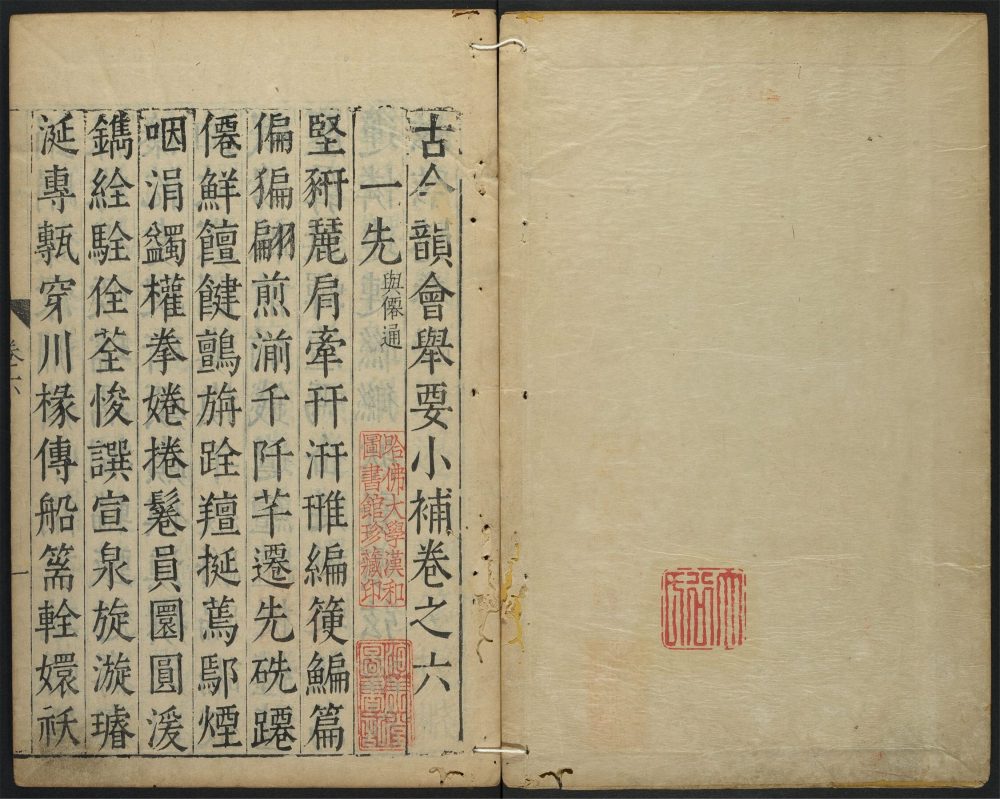 古今韻會舉要小補卷之六
一先與僊通
堅豜麗肩牽幵汧雃編箯鯿篇
偏猵翩煎湔千阡芊遷先硄躚
僊鮮饘鍵鸇旃跧羶挻蔫鄢煙
咽涓蠲權拳婘捲鬈員圜圓湲
鐫絟駩佺荃悛譔宣泉旋漩璿
涎專甎穿川椽傳船篅輇嬛祅
卷六
一
哈佛大學漢和
圖書館珍藏印